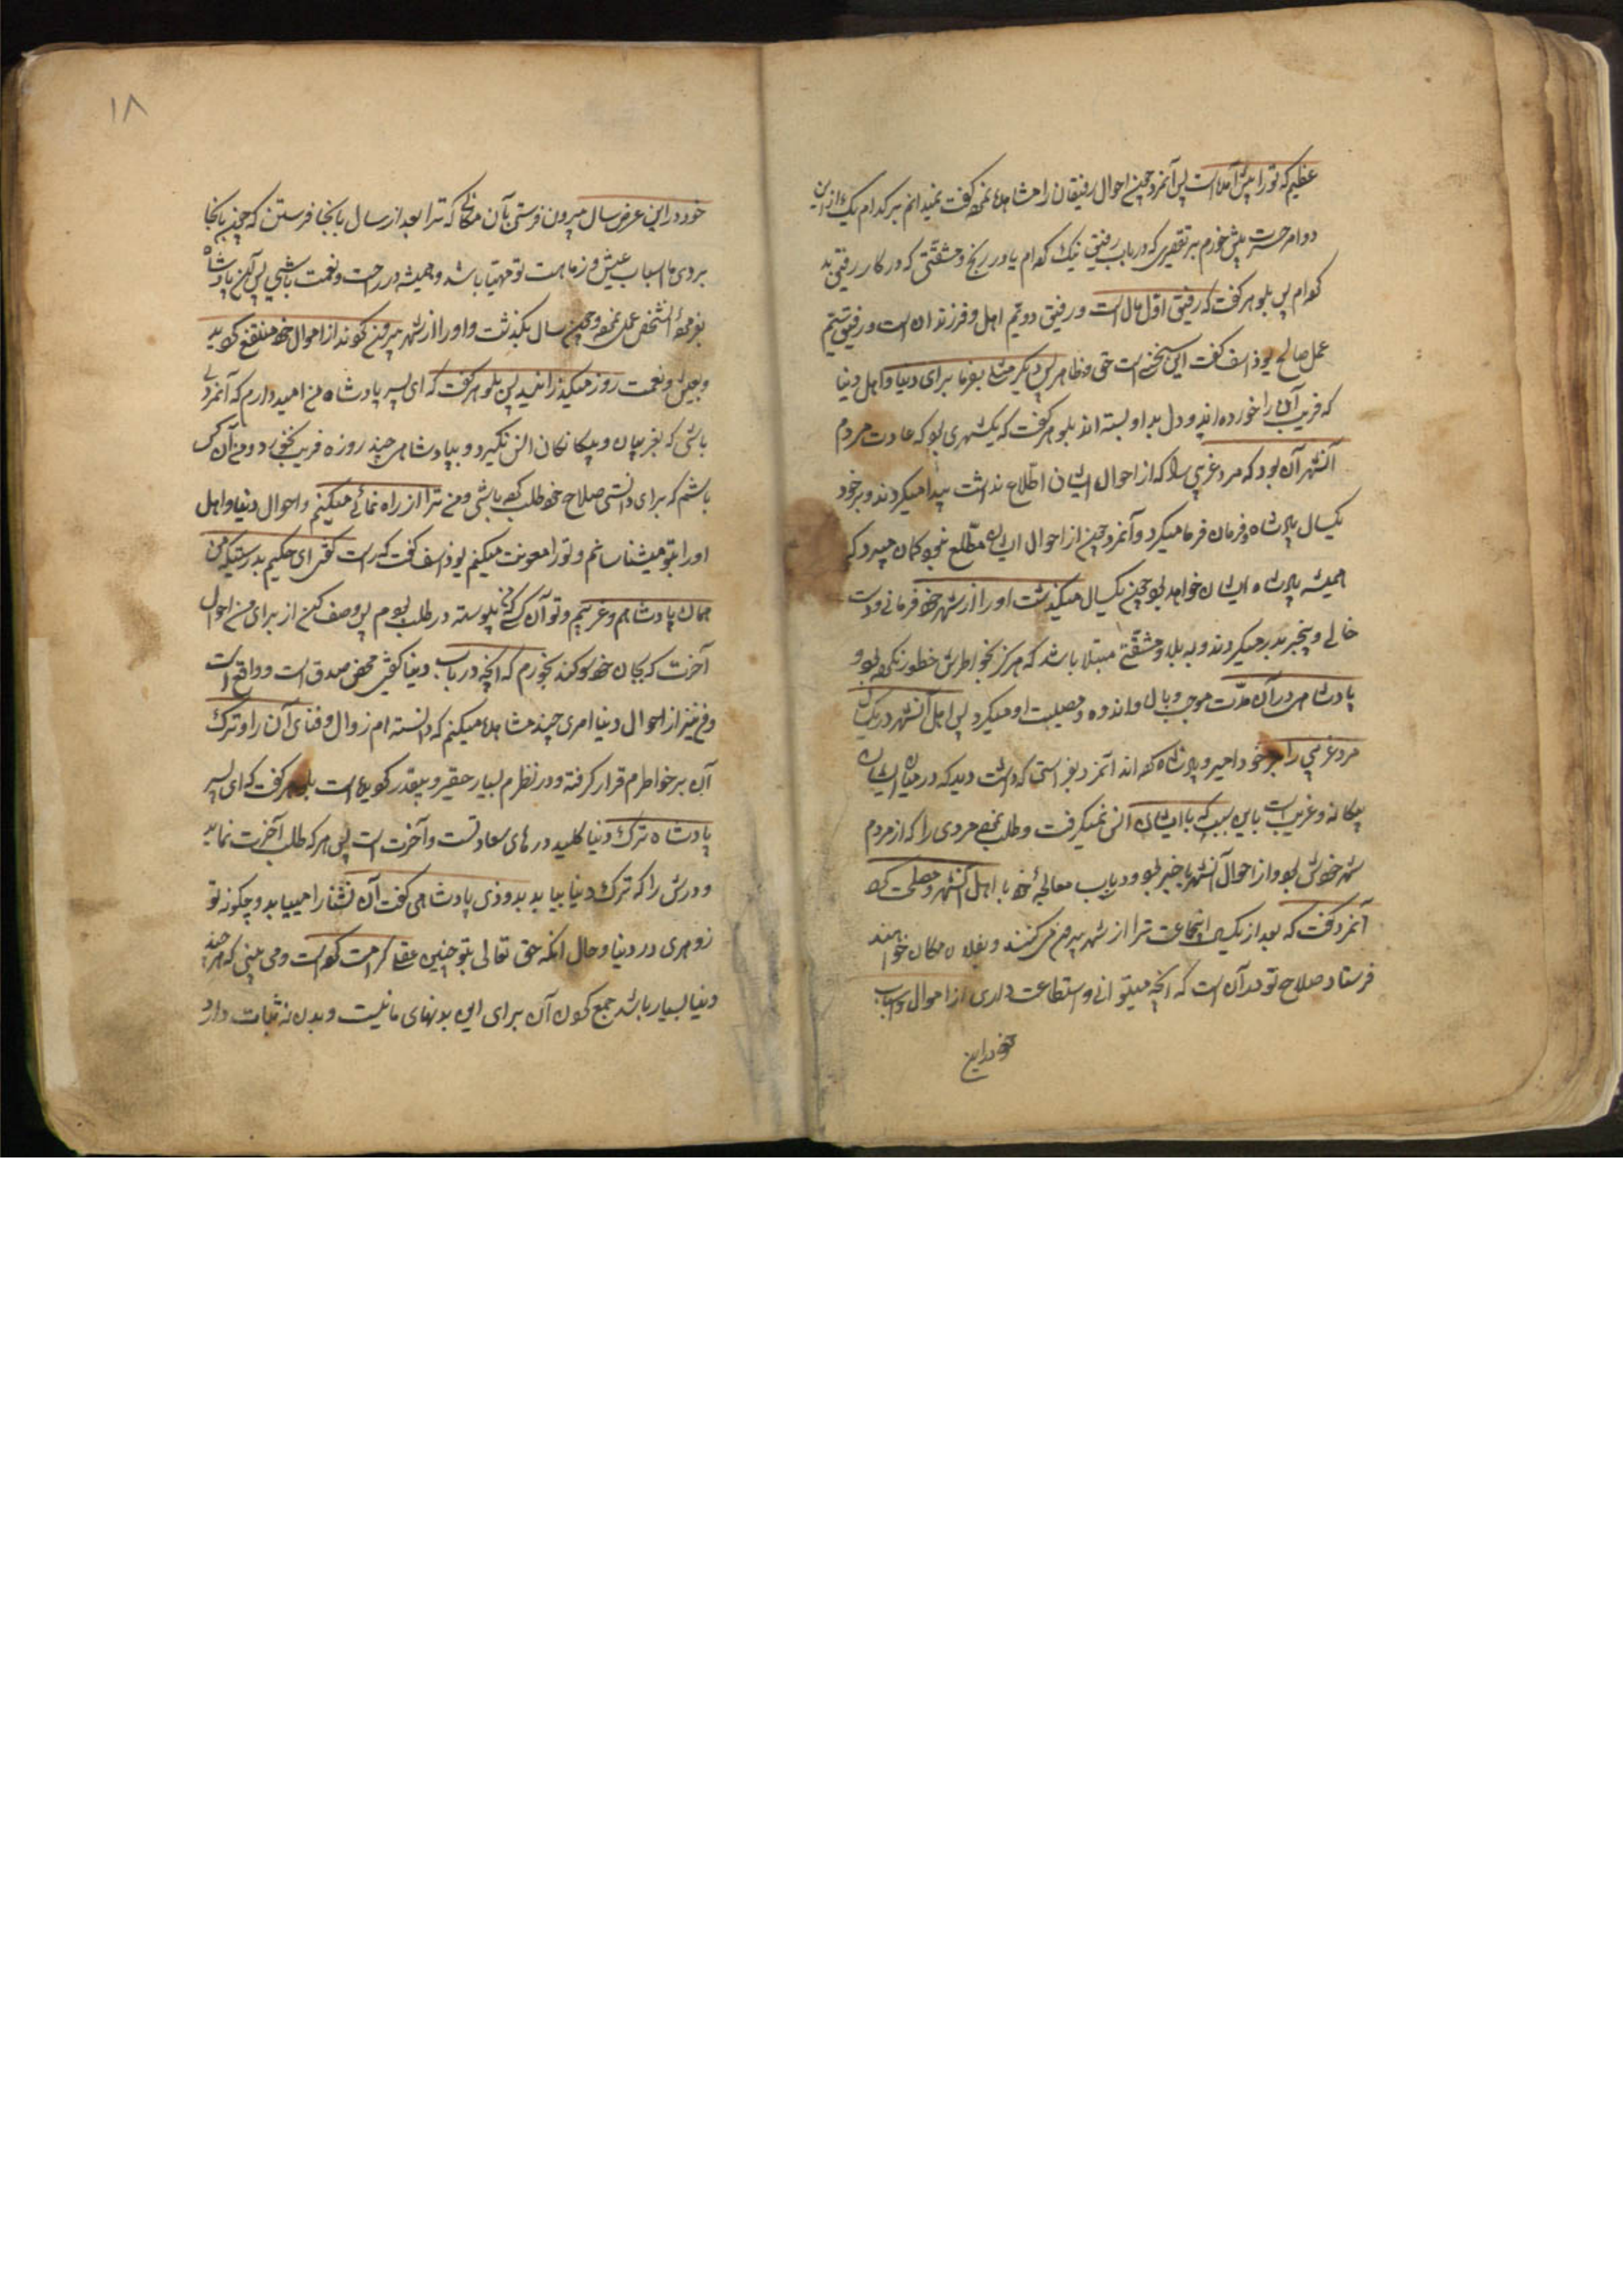 عظیم که تو را پیش آمده است پس آنمرد چون احوال رفیقان را مشاهده نمود گفت نمیدانم بر کدام یک از این
دو امر حسرت بیش خورم بر تقصیری که در باب رفیق نیک کرده‌ام یا در رنج و مشقتی که در کار رفیق بد
کرده‌ام پس بلوهر گفت که رفیق اول مال است و رفیق دویم اهل و فرزندان است و رفیق سیم
عمل صالح یوذاسف گفت این سخنی است حق و ظاهر پس دیگر مثلی بفرما برای دنیا و اهل دنیا
که فریب آن را خورده‌اند و دل بداو بسته‌اند بلوهر گفت که یکشهری بود که عادت مردم
آنشهر آن بود که مرد غریبی را که از احوال ایشان اطلاع نداشت پیدا میکردند و بر خود
یکسال پادشاه و فرمان فرما میکرد و آنمرد چون از احوال ایشان مطلع نبود گمان میبرد که
همیشه پادشاه ایشان خواهد بود چون یکسال میگذشت او را از شهر خود عریان و دست
خالی و بیخبر بدر میکردند و به بلا و مشقتی مبتلا میشد که هرگز بخواطرش خطور نکرده بود و
پادشاهی در آن مدت موجب وبال و اندوه و مصیبت او میگردید پس اهل آنشهر در یکسال
مرد غریبی را بر خود امیر و پادشاه کردند آنمرد بفراستی که داشت دید که در میان ایشان
بیگانه و غریب است باین سبب که با ایشان انس نمیگرفت و طلب نمود مردی را که از مردم
شهر خودش بود و از احوال آنشهر باخبر بود و در باب معالجهٔ خود با اهل آنشهر مصلحت کرد
آنمرد گفت که بعد از یکسال اینجماعت ترا از شهر بیرون میکنند و بفلان مکان خواهند
فرستاد صلاح تو در آن است که آنچه میتوانی و استطاعت داری از اموال و اسباب
خود در این
۱۸
خود در این عرض سال بیرون فرستی بآن مکانی که ترا بعد از سال بانجا فرستند که چون بانجا
بروی اسباب عیش و رفاهیت تو مهیا باشد و همیشه در راحت و نعمت باشی پس آن پادشاه
بفرمودهٔ آنشخص عمل نمود و چون سال بگذشت و او را از شهر بیرون کردند از اموال خود منتفع گردید
و بعیش و نعمت روز میگذرانید پس بلوهر گفت که ای پسر پادشاه من امید دارم که آنمردی
باشی که بغریبان و بیگانگان انس نگیرد و بپادشاهی چند روزه فریب نخورد و من آن کس
باشم که برای دانستن صلاح خود طلب کرده باشی و من ترا از راه نمائی میکنم و احوال دنیا و اهل
او را بتو میشناسانم و تو را معونت میکنم یوذاسف گفت که راست گفتی ای حکیم بدرستیکه من
همان پادشاهم و غریبم و تو آن کسی که من پیوسته در طلب او بودم پس وصف کن از برای من احوال
آخرت که بجان خود سوگند بخورم که آنچه در باب دنیا گفتی محض صدق است و واقع است
و من نیز از احوال دنیا امری چند مشاهده میکنم که دانسته‌ام زوال و فنای آن را و ترک
آن بر خواطرم قرار گرفته و در نظرم بسیار حقیر و بیقدر گردیده است بلوهر گفت که ای پسر
پادشاه ترک دنیا کلید درهای سعادتست و آخرت است پس هر که طلب آخرت نماید
و درش را که ترک دنیا بیابد بزودی پادشاهی آن نشأه را مییابد و چگونه تو
زهد نورزی در دنیا و حال آنکه حق تعالی بتو چنین عقلی کرامت کرده است و می بینی که هر چند
دنیا بسیار باشد جمع کردن آن برای این بدنهای فانیست و بدن نه ثبات دارد